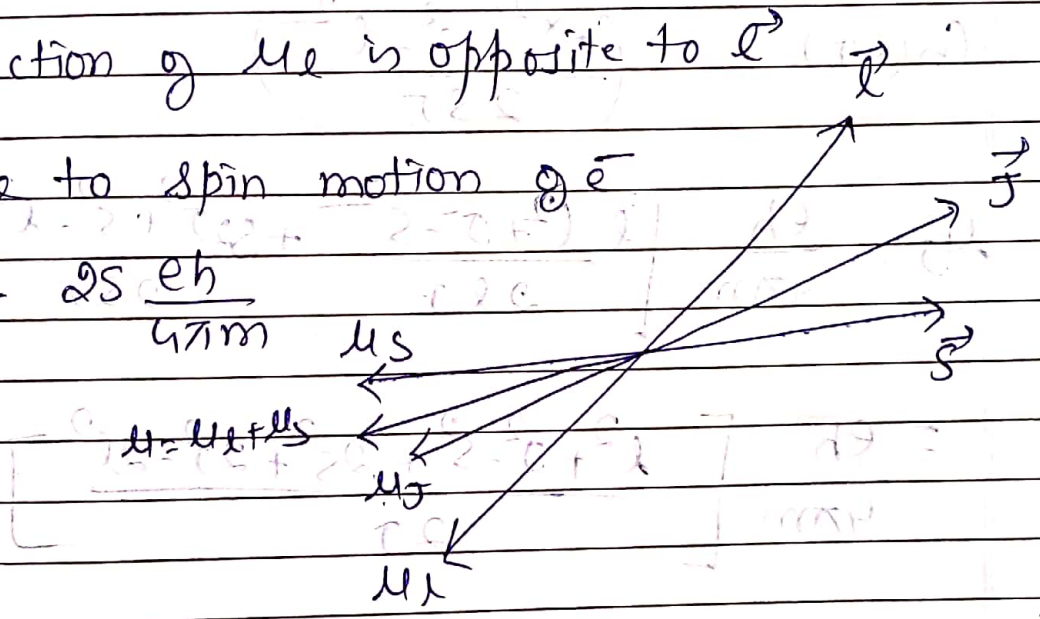 ction of μl is opposite to l⃗
l⃗
e to spin motion of e⁻
J⃗
2s eh
4πm
μs
s⃗
μ = μl + μs
μJ
μl